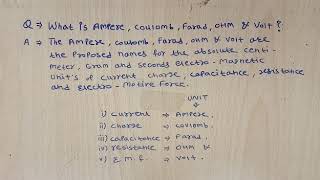 Q ⇒ What is Ampere, coulomb, Farad, ohm & Volt?
A ⇒ The Ampere, coulomb, Farad, ohm & volt are
the Proposed names for the absolute centi-
meter, Gram and seconds electro-Magnetic
Unit's of current charge, capacitance, resistance
and electro-Motive Force.
UNIT
i) current → Ampere.
ii) charge → coulomb.
iii) capacitance → Farad.
iv) resistance → ohm &
v) E.M.F. → volt.